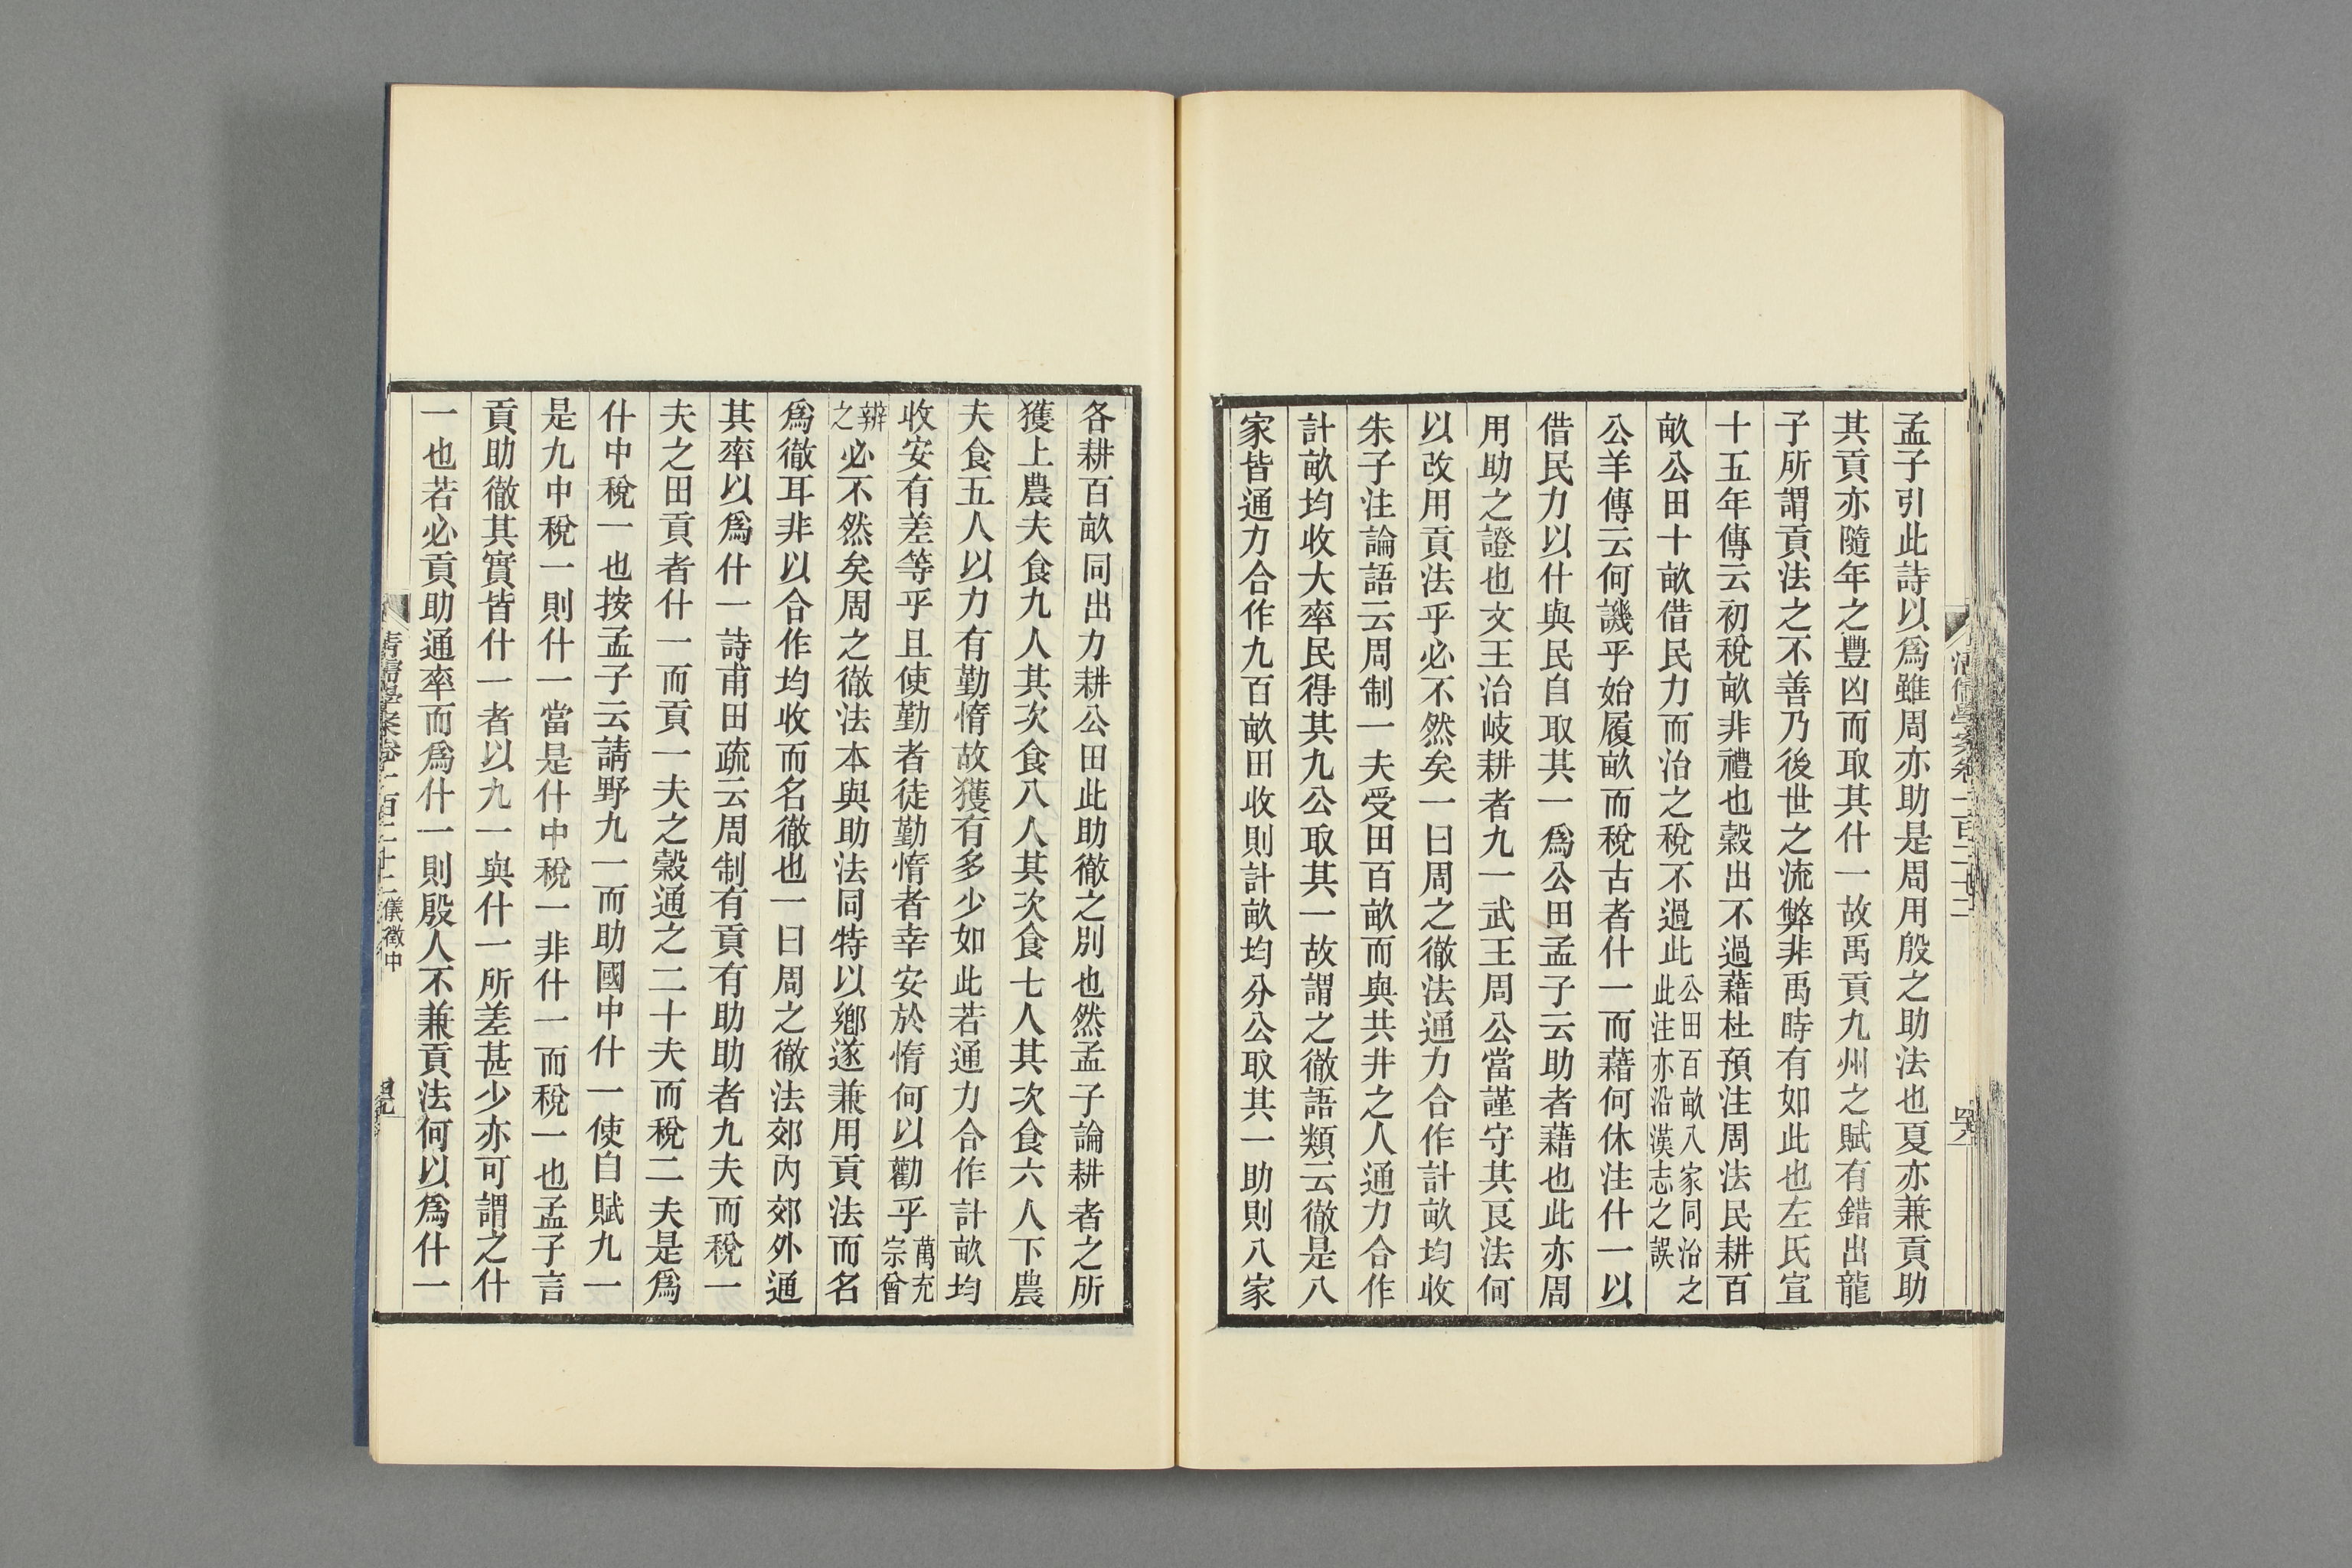 孟子引此詩以爲雖周亦助是周用殷之助法也夏亦兼貢助
其貢亦隨年之豐凶而取其什一故禹貢九州之賦有錯出龍
子所謂貢法之不善乃後世之流弊非禹時有如此也左氏宣
十五年傳云初稅畝非禮也穀出不過藉杜預注周法民耕百
畝公田十畝借民力而治之稅不過此公田百畝八家同治之此注亦沿漢志之誤
公羊傳云何譏乎始履畝而稅古者什一而藉何休注什一以
借民力以什與民自取其一爲公田孟子云助者藉也此亦周
用助之證也文王治岐耕者九一武王周公當謹守其良法何
以改用貢法乎必不然矣一曰周之徹法通力合作計畝均收
朱子注論語云周制一夫受田百畝而與共井之人通力合作
計畝均收大率民得其九公取其一故謂之徹語類云徹是八
家皆通力合作九百畝田收則計畝均分公取其一助則八家
各耕百畝同出力耕公田此助徹之別也然孟子論耕者之所
獲上農夫食九人其次食八人其次食七人其次食六人下農
夫食五人以力有勤惰故獲有多少如此若通力合作計畝均
收安有差等乎且使勤者徒勤惰者幸安於惰何以勸乎萬充宗曾
辨之必不然矣周之徹法本與助法同特以鄉遂兼用貢法而名
爲徹耳非以合作均收而名徹也一曰周之徹法郊內郊外通
其率以爲什一詩甫田疏云周制有貢有助助者九夫而稅一
夫之田貢者什一而貢一夫之穀通之二十夫而稅二夫是爲
什中稅一也按孟子云請野九一而助國中什一使自賦九一
是九中稅一則什一當是什中稅一非什一而稅一也孟子言
貢助徹其實皆什一者以九一與什一所差甚少亦可謂之什
一也若必貢助通率而爲什一則殷人不兼貢法何以爲什一
清儒學案卷一百二十二儀徵中